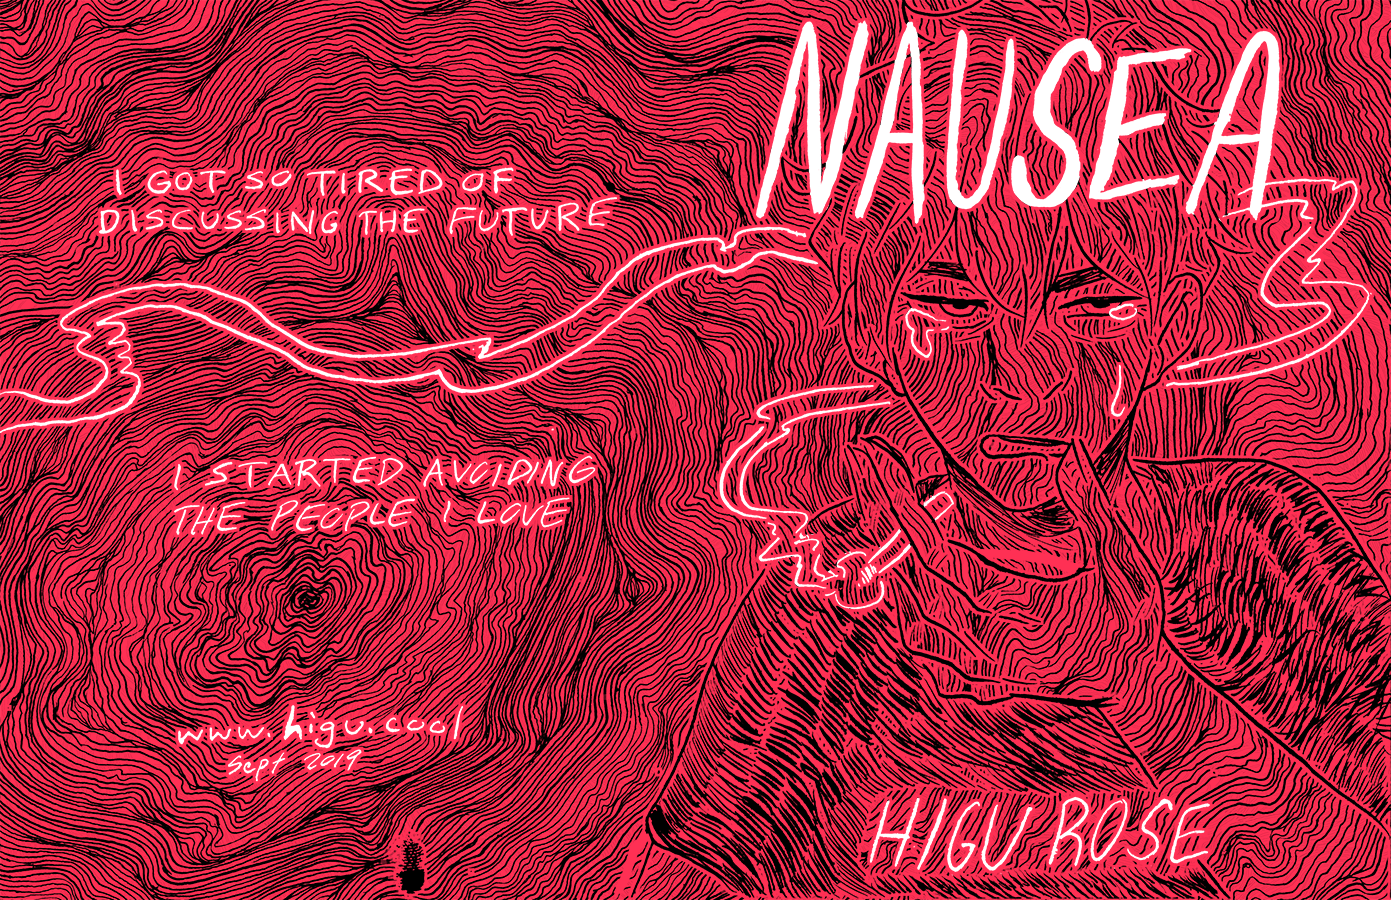 NAUSEA
I GOT SO TIRED OF
DISCUSSING THE FUTURE
I STARTED AVOIDING
THE PEOPLE I LOVE
www.higu.cool
Sept 2019
HIGU ROSE